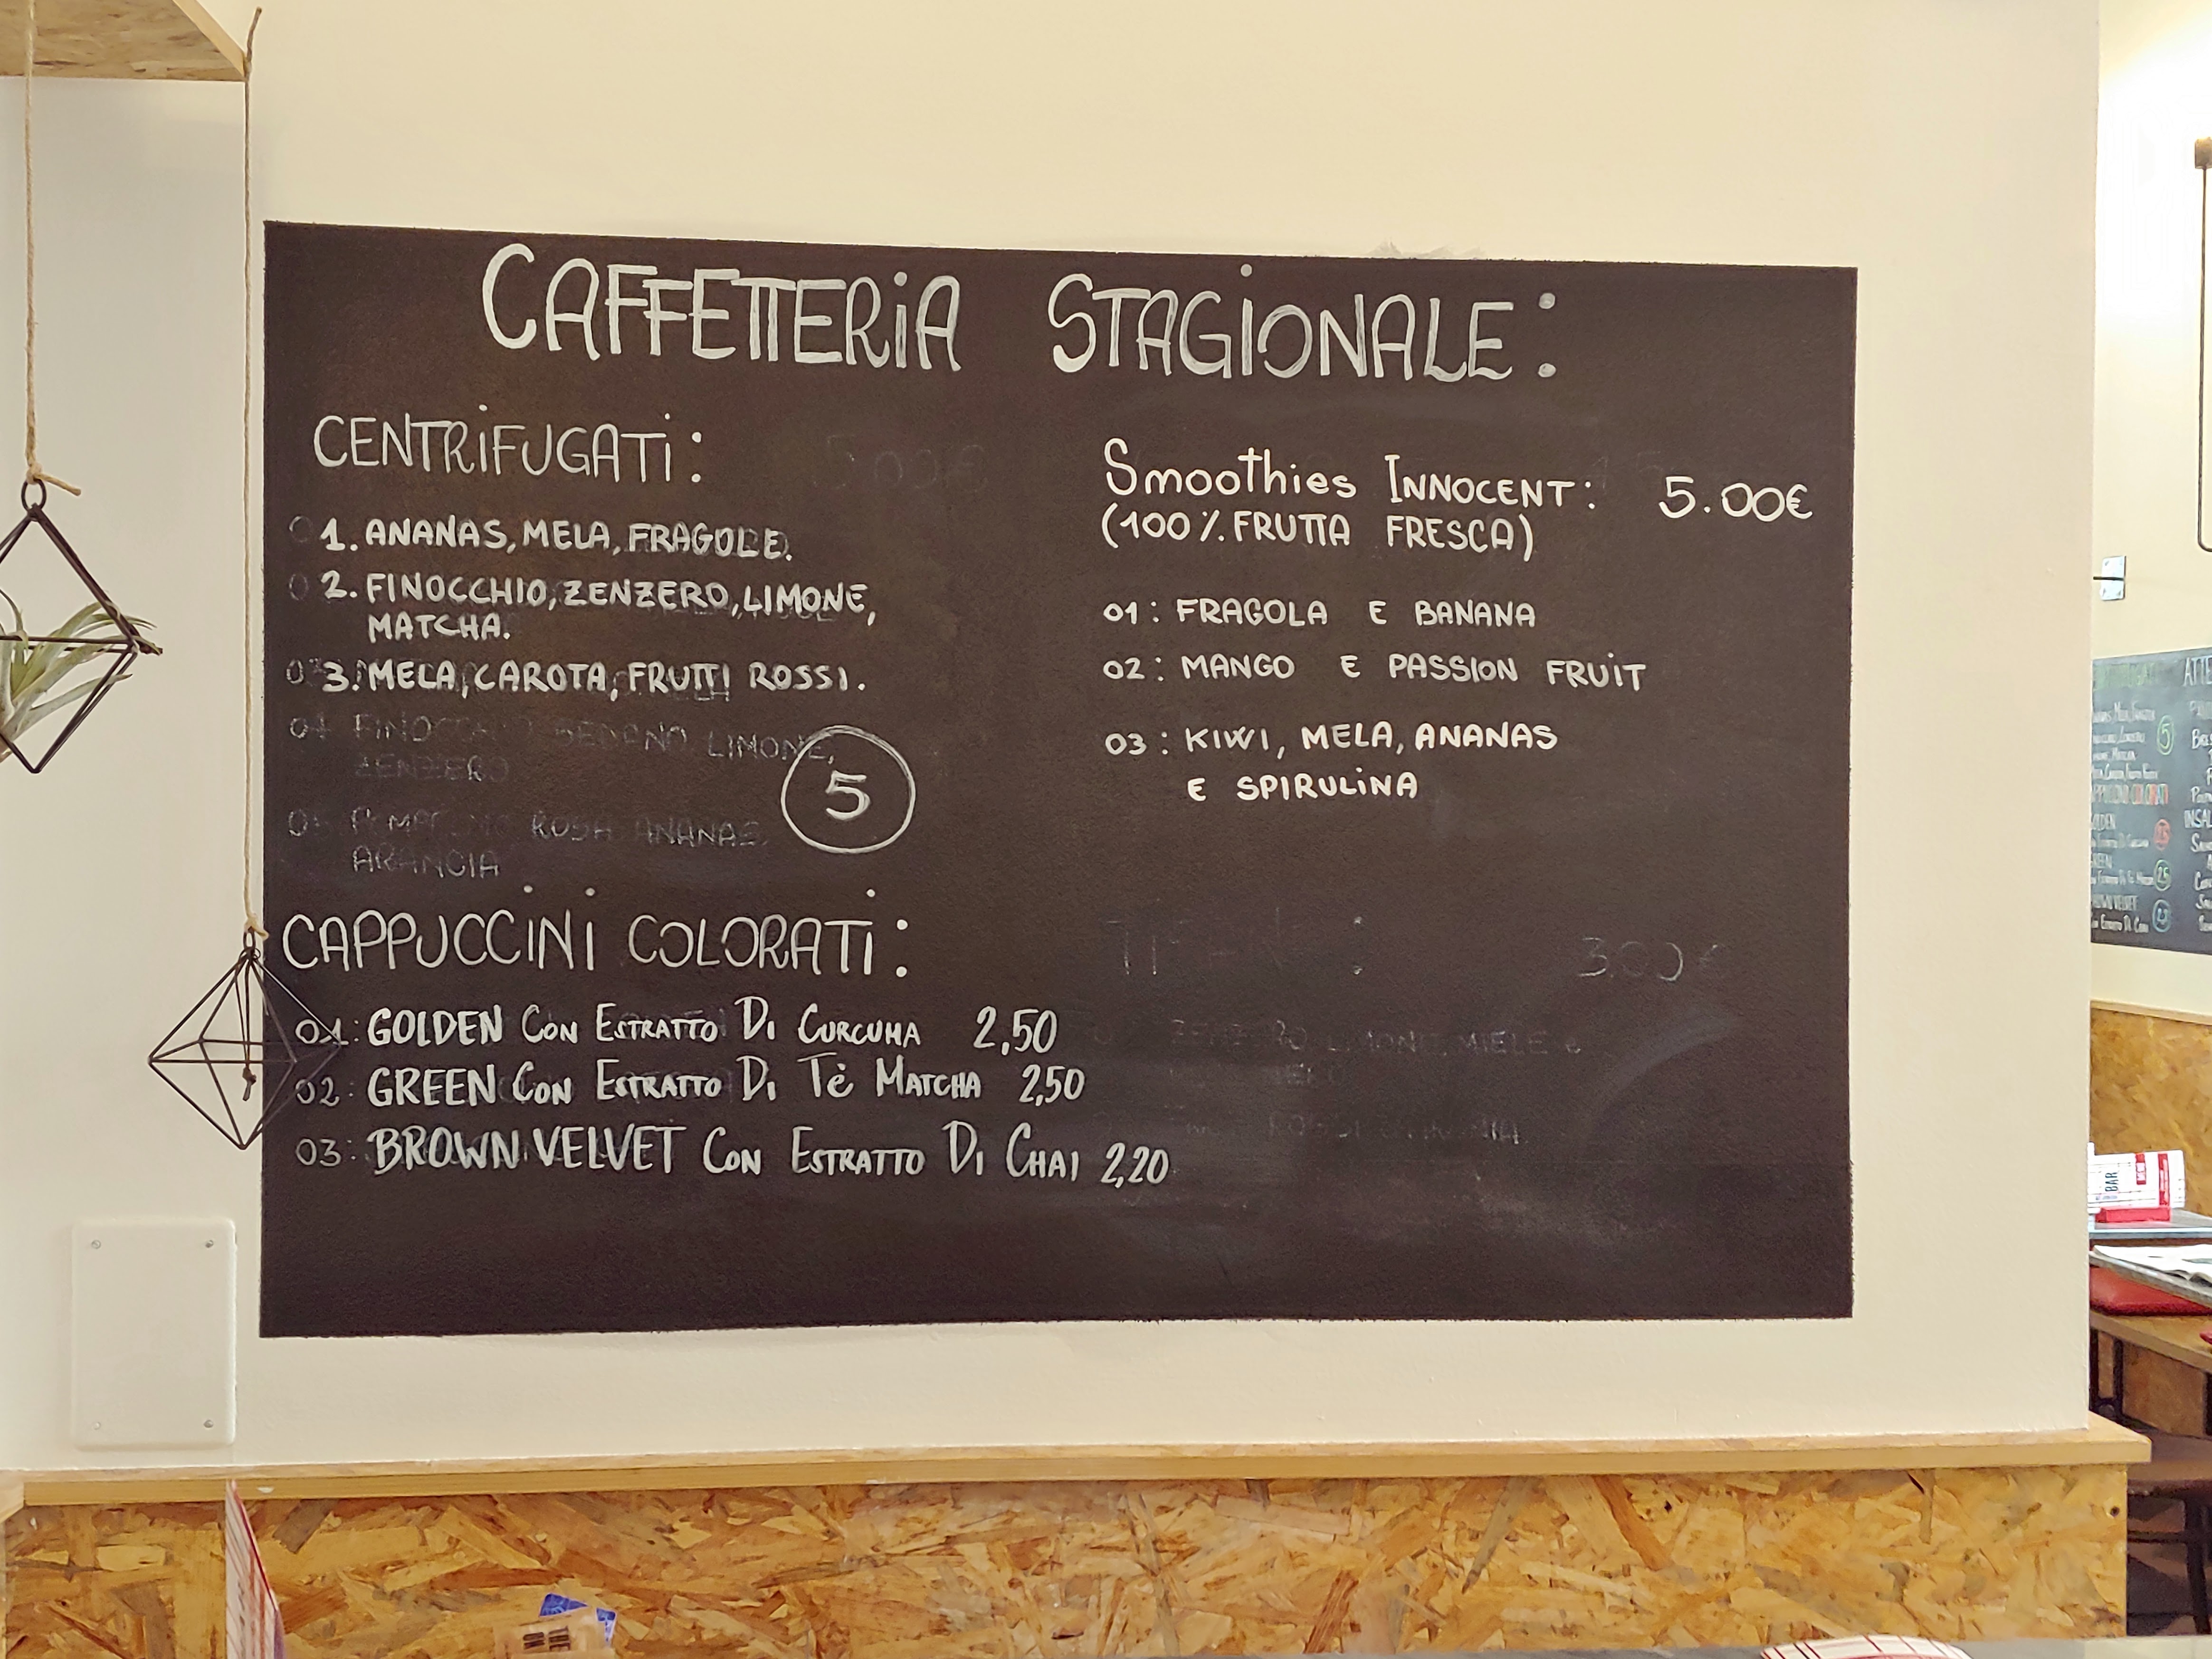 CAFFETTERIA STAGIONALE:
CENTRIFUGATI:
1. ANANAS, MELA, FRAGOLE.
2. FINOCCHIO, ZENZERO, LIMONE,
MATCHA.
3. MELA, CAROTA, FRUTTI ROSSI.
LIMONE,
ZENZERO
5
ROSA ANANAS,
ARANCIA
CAPPUCCINI COLORATI:
01: GOLDEN CON ESTRATTO DI CURCUMA 2,50
02: GREEN CON ESTRATTO DI TÈ MATCHA 2,50
03: BROWN VELVET CON ESTRATTO DI CHAI 2,20
Smoothies INNOCENT: 5.00€
(100% FRUTTA FRESCA)
01: FRAGOLA E BANANA
02: MANGO E PASSION FRUIT
03: KIWI, MELA, ANANAS
E SPIRULINA
3.00€
LIMONE, MIELE e
BAR